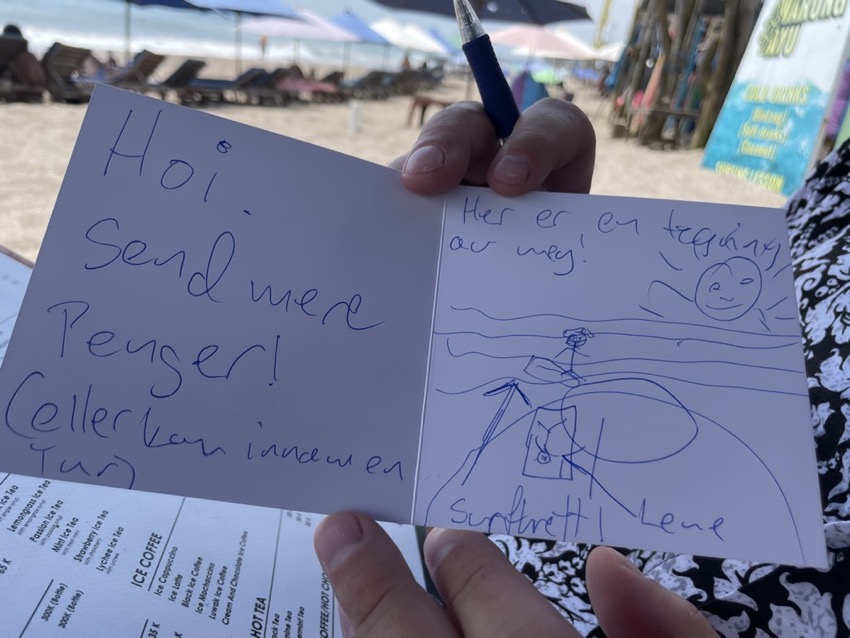 Hoi.
Send mere
Penger!
(eller kan innom en
Tur)
Her er en teggning
av meg!
Surfbrett!
Lene
Lemongrass Ice Tea
Passion Ice Tea
Mint Ice Tea
Strawberry Ice Tea
Lychee Ice Tea
ICE COFFEE
Ice Cappucino
Ice Latte
Black Ice Coffee
Ice Mochacinno
Luwak Ice Coffee
Cream And Chocolate Ice Coffee
300K (Bottle)
300K (Bottle)
35 K
HOT TEA
COLD DRINKS
Bintang
Soft drinks
Coconut
SURFING LESSON